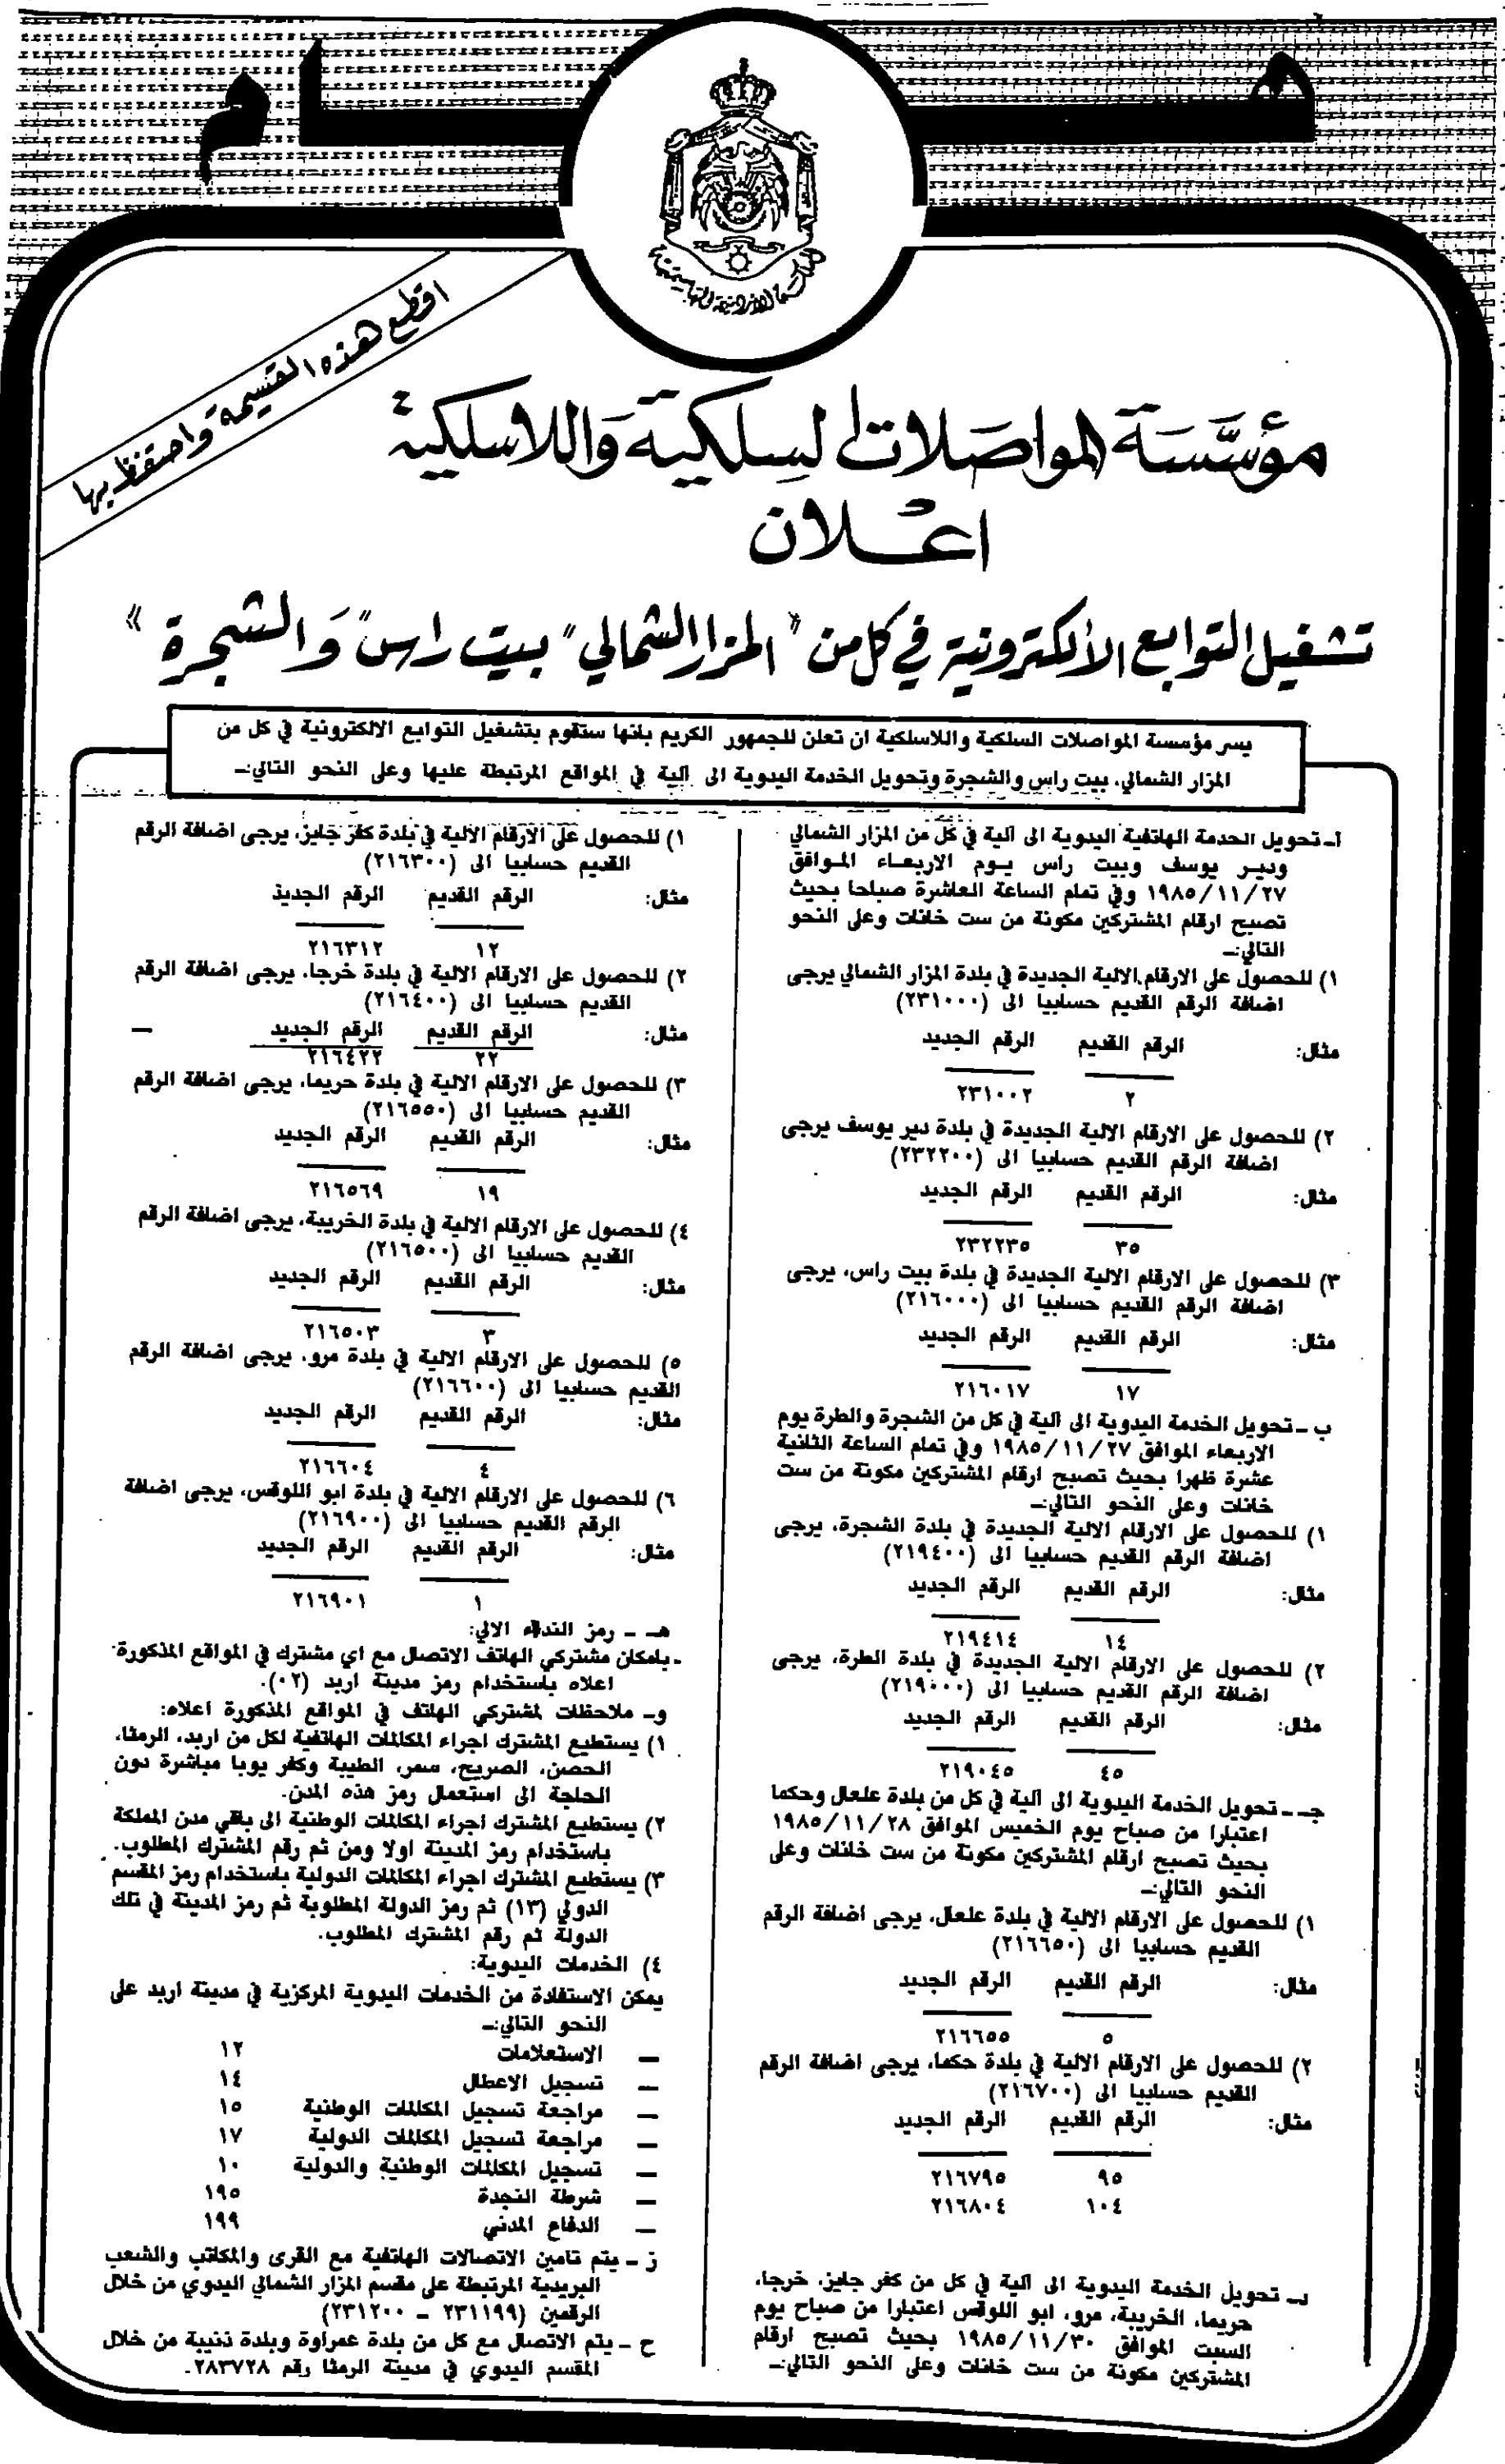 هـــام
المملكة الأردنية الهاشمية
اقطع هذه القسيمة واحتفظ بها
مؤسسة المواصلات السلكية واللاسلكية
اعلان
تشغيل التوابع الألكترونية في كل من "المزار الشمالي" بيت راس" والشجرة »
يسر مؤسسة المواصلات السلكية واللاسلكية ان تعلن للجمهور الكريم بانها ستقوم بتشغيل التوابع الالكترونية في كل من
المزار الشمالي، بيت راس والشجرة وتحويل الخدمة اليدوية الى آلية في المواقع المرتبطة عليها وعلى النحو التالي:ـ
أ- تحويل الخدمة الهاتفية اليدوية الى آلية في كل من المزار الشمالي
ودير يوسف وبيت راس يـوم الاربعـاء المـوافق
١٩٨٥/١١/٢٧ وفي تمام الساعة العاشرة صباحا بحيث
تصبح ارقام المشتركين مكونة من ست خانات وعلى النحو
التالي:ـ
١) للحصول على الارقام الالية الجديدة في بلدة المزار الشمالي يرجى
اضافة الرقم القديم حسابيا الى (٢٣١٠٠٠)
مثال: الرقم القديم الرقم الجديد
٢ ٢٣١٠٠٢
٢) للحصول على الارقام الالية الجديدة في بلدة دير يوسف يرجى
اضافة الرقم القديم حسابيا الى (٢٣٢٢٠٠)
مثال: الرقم القديم الرقم الجديد
٣٥ ٢٣٢٢٣٥
٣) للحصول على الارقام الالية الجديدة في بلدة بيت راس، يرجى
اضافة الرقم القديم حسابيا الى (٢١٦٠٠٠)
مثال: الرقم القديم الرقم الجديد
١٧ ٢١٦٠١٧
ب ـ تحويل الخدمة اليدوية الى آلية في كل من الشجرة والطرة يوم
الاربعاء الموافق ١٩٨٥/١١/٢٧ وفي تمام الساعة الثانية
عشرة ظهرا بحيث تصبح ارقام المشتركين مكونة من ست
خانات وعلى النحو التالي:ـ
١) للحصول على الارقام الالية الجديدة في بلدة الشجرة، يرجى
اضافة الرقم القديم حسابيا الى (٢١٩٤٠٠)
مثال: الرقم القديم الرقم الجديد
١٤ ٢١٩٤١٤
٢) للحصول على الارقام الالية الجديدة في بلدة الطرة، يرجى
اضافة الرقم القديم حسابيا الى (٢١٩٠٠٠)
مثال: الرقم القديم الرقم الجديد
٤٥ ٢١٩٠٤٥
جـ ـ تحويل الخدمة اليدوية الى آلية في كل من بلدة علعال وحكما
اعتبارا من صباح يوم الخميس الموافق ١٩٨٥/١١/٢٨
بحيث تصبح ارقام المشتركين مكونة من ست خانات وعلى
النحو التالي:ـ
١) للحصول على الارقام الالية في بلدة علعال، يرجى اضافة الرقم
القديم حسابيا الى (٢١٦٦٥٠)
مثال: الرقم القديم الرقم الجديد
٥ ٢١٦٦٥٥
٢) للحصول على الارقام الالية في بلدة حكما، يرجى اضافة الرقم
القديم حسابيا الى (٢١٦٧٠٠)
مثال: الرقم القديم الرقم الجديد
٩٥ ٢١٦٧٩٥
١٠٤ ٢١٦٨٠٤
د ـ تحويل الخدمة اليدوية الى آلية في كل من كفر جايز، خرجا،
حريما، الخريبة، مرو، ابو اللوقس اعتبارا من صباح يوم
السبت الموافق ١٩٨٥/١١/٣٠ بحيث تصبح ارقام
المشتركين مكونة من ست خانات وعلى النحو التالي:ـ
١) للحصول على الارقام الالية في بلدة كفر جايز، يرجى اضافة الرقم
القديم حسابيا الى (٢١٦٣٠٠)
مثال: الرقم القديم الرقم الجديد
١٢ ٢١٦٣١٢
٢) للحصول على الارقام الالية في بلدة خرجا، يرجى اضافة الرقم
القديم حسابيا الى (٢١٦٤٠٠)
مثال: الرقم القديم الرقم الجديد
٢٢ ٢١٦٤٢٢
٣) للحصول على الارقام الالية في بلدة حريما، يرجى اضافة الرقم
القديم حسابيا الى (٢١٦٥٥٠)
مثال: الرقم القديم الرقم الجديد
١٩ ٢١٦٥٦٩
٤) للحصول على الارقام الالية في بلدة الخريبة، يرجى اضافة الرقم
القديم حسابيا الى (٢١٦٥٠٠)
مثال: الرقم القديم الرقم الجديد
٣ ٢١٦٥٠٣
٥) للحصول على الارقام الالية في بلدة مرو، يرجى اضافة الرقم
القديم حسابيا الى (٢١٦٦٠٠)
مثال: الرقم القديم الرقم الجديد
٤ ٢١٦٦٠٤
٦) للحصول على الارقام الالية في بلدة ابو اللوقس، يرجى اضافة
الرقم القديم حسابيا الى (٢١٦٩٠٠)
مثال: الرقم القديم الرقم الجديد
١ ٢١٦٩٠١
هـ ـ رمز النداء الالي:
ـ بامكان مشتركي الهاتف الاتصال مع اي مشترك في المواقع المذكورة
اعلاه باستخدام رمز مدينة اربد (٠٢).
و ـ ملاحظات لمشتركي الهاتف في المواقع المذكورة اعلاه:
١) يستطيع المشترك اجراء المكالمات الهاتفية لكل من اربد، الرمثا،
الحصن، الصريح، سمر، الطيبة وكفر يوبا مباشرة دون
الحاجة الى استعمال رمز هذه المدن.
٢) يستطيع المشترك اجراء المكالمات الوطنية الى باقي مدن المملكة
باستخدام رمز المدينة اولا ومن ثم رقم المشترك المطلوب.
٣) يستطيع المشترك اجراء المكالمات الدولية باستخدام رمز المقسم
الدولي (١٣) ثم رمز الدولة المطلوبة ثم رمز المدينة في تلك
الدولة ثم رقم المشترك المطلوب.
٤) الخدمات اليدوية:
يمكن الاستفادة من الخدمات اليدوية المركزية في مدينة اربد على
النحو التالي:ـ
ـ الاستعلامات ١٢
ـ تسجيل الاعطال ١٤
ـ مراجعة تسجيل المكالمات الوطنية ١٥
ـ مراجعة تسجيل المكالمات الدولية ١٧
ـ تسجيل المكالمات الوطنية والدولية ١٠
ـ شرطة النجدة ١٩٥
ـ الدفاع المدني ١٩٩
ز ـ يتم تامين الاتصالات الهاتفية مع القرى والمكاتب والشعب
البريدية المرتبطة على مقسم المزار الشمالي اليدوي من خلال
الرقمين (٢٣١١٩٩ ـ ٢٣١٢٠٠)
ح ـ يتم الاتصال مع كل من بلدة عمراوة وبلدة ذنيبة من خلال
المقسم اليدوي في مدينة الرمثا رقم ٢٨٣٧٢٨ـ